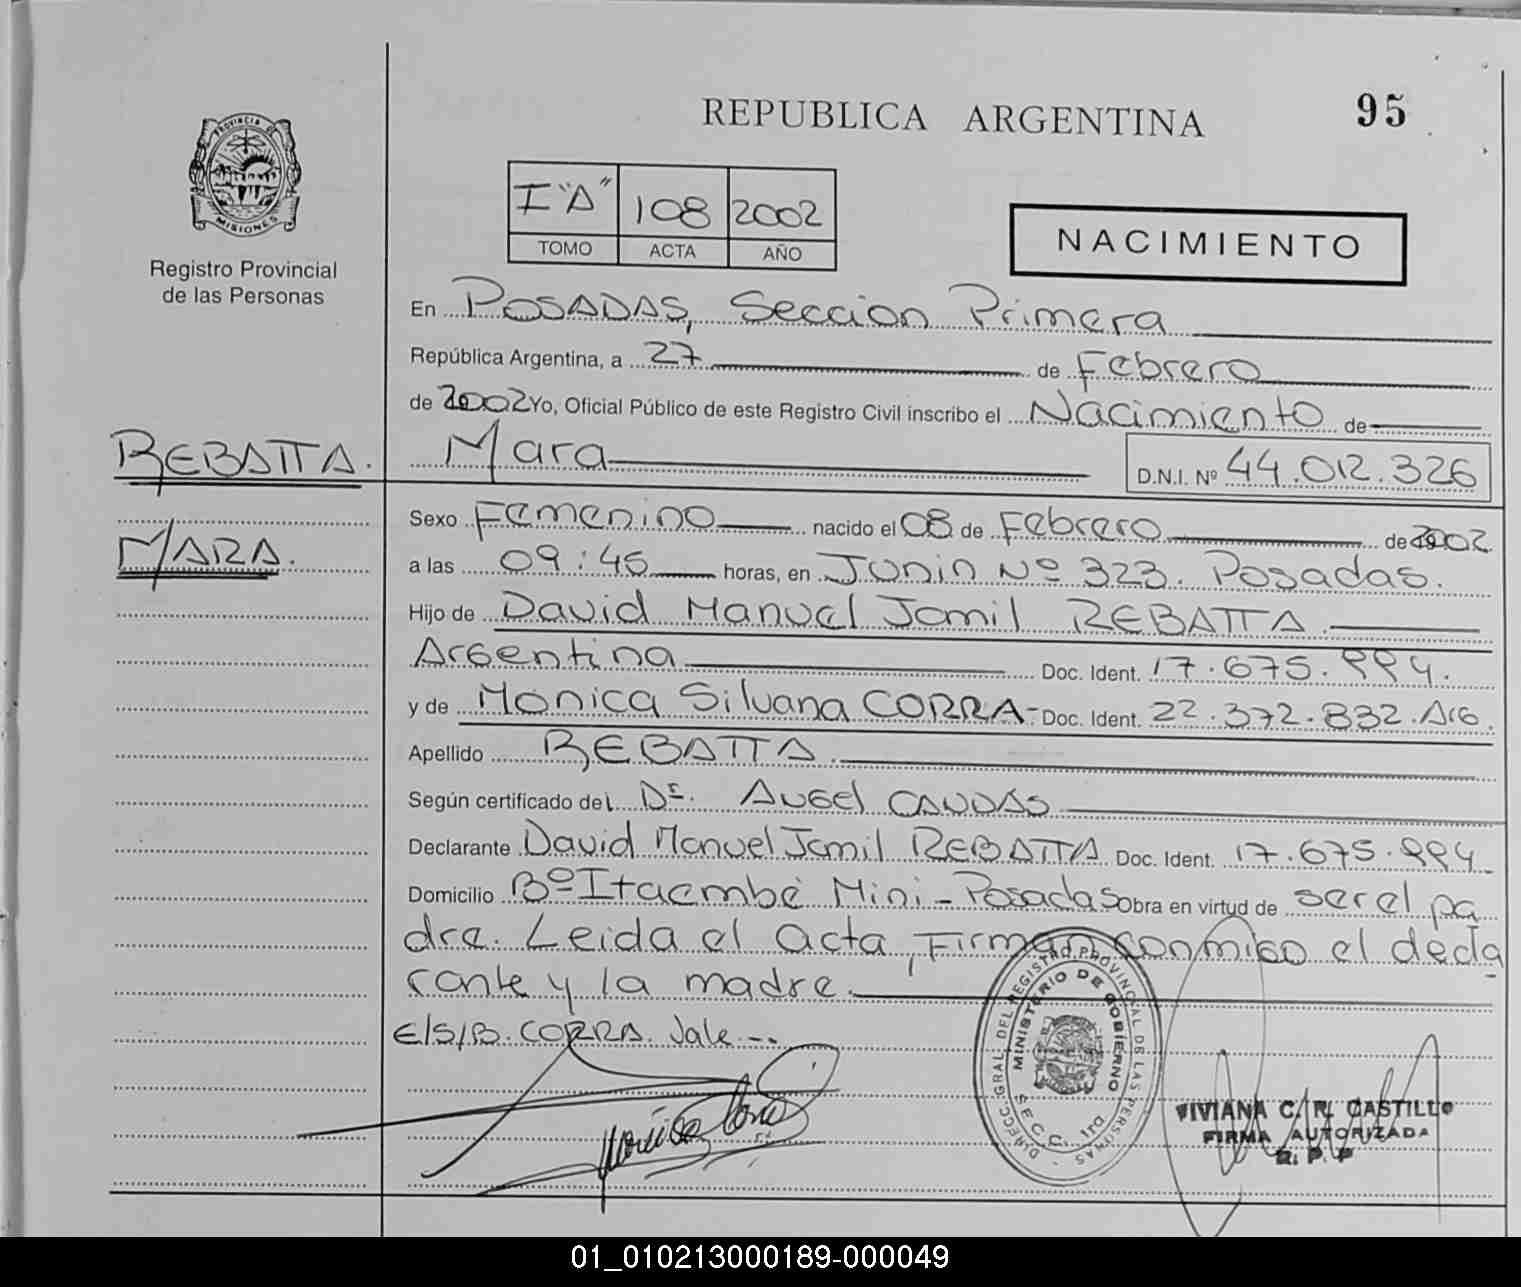 REPUBLICA ARGENTINA
95
PROVINCIA DE
MISIONES
Registro Provincial
de las Personas
I "A" 108 2002
TOMO ACTA AÑO
NACIMIENTO
En POSADAS, Seccion Primera
República Argentina, a 27 de Febrero
de 2002 Yo, Oficial Público de este Registro Civil inscribo el Nacimiento de
REBATTA.
Mara
D.N.I. Nº 44.012.326
MARA.
Sexo Femenino nacido el 08 de Febrero de 2002
a las 09:45 horas, en Junin Nº 323. Posadas.
Hijo de David Manuel Jamil REBATTA
Argentina Doc. Ident. 17.675.994.
y de Monica Silvana CORRA- Doc. Ident. 22.372.832. Arg.
Apellido REBATTA
Según certificado del Dr. Angel CANDAS
Declarante David Manuel Jamil REBATTA Doc. Ident. 17.675.994
Domicilio Bº Itaembé Mini - Posadas Obra en virtud de ser el pa
dre. Leida el acta, Firman conmigo el decla
rante y la madre.
E/S/B. CORRA. Vale.-.
DIREC. GRAL. DEL REGISTRO PROVINCIAL DE LAS PERSONAS
MINISTERIO DE GOBIERNO
SECC. 1ra
VIVIANA C. R. CASTILLO
FIRMA AUTORIZADA
R. P. P
01_010213000189-000049